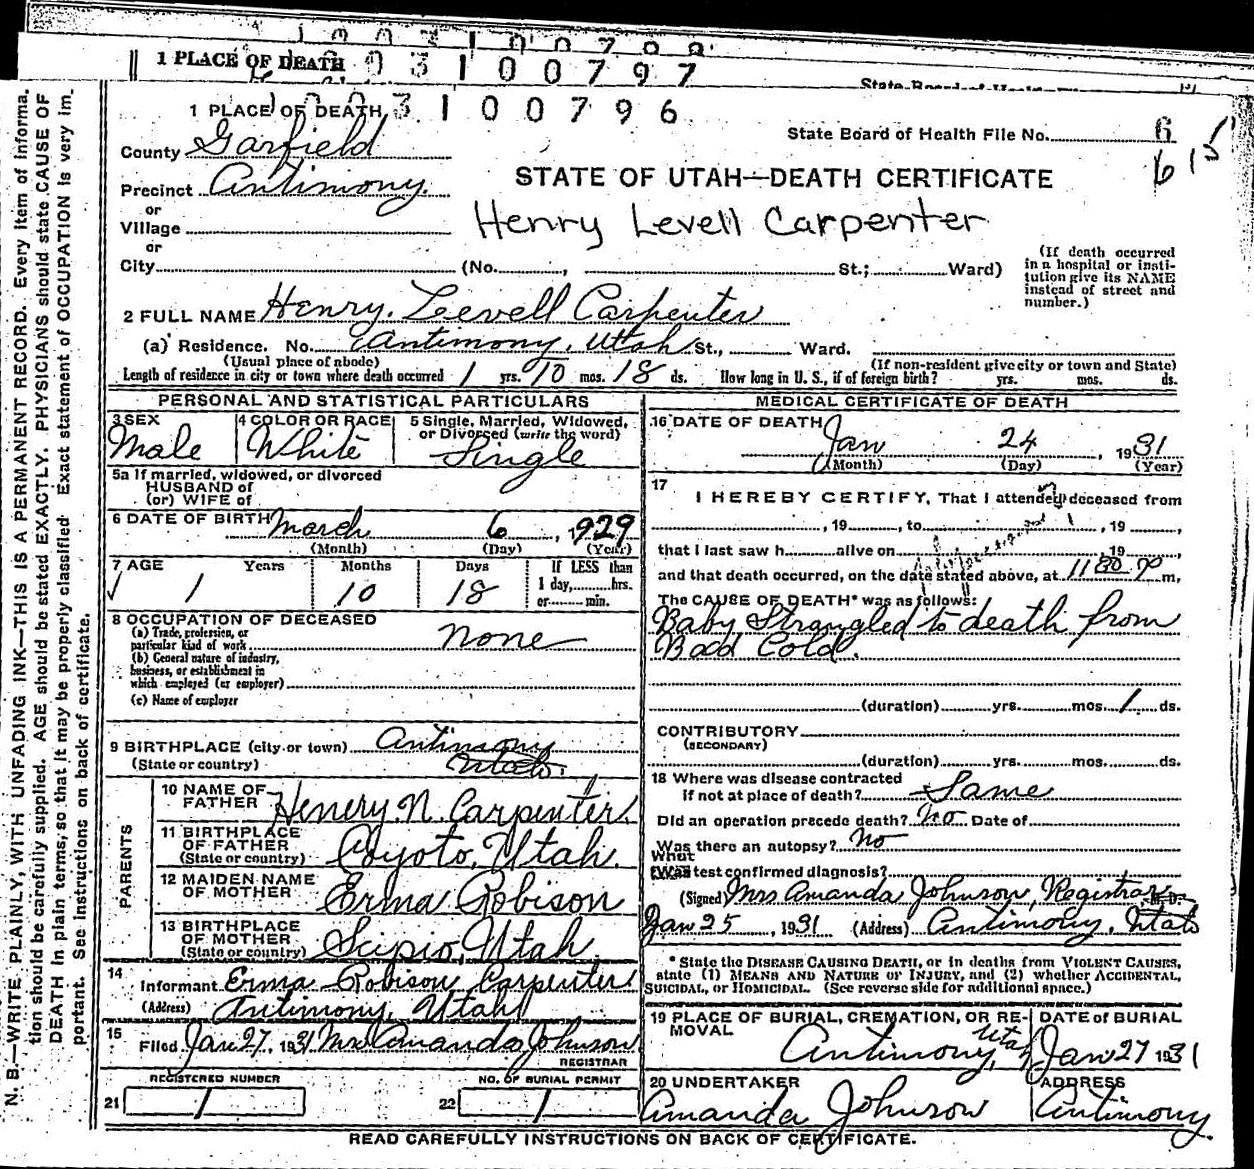 1 PLACE OF DEATH 0 3 1 0 0 7 9 7
State Board of Health
1 PLACE OF DEATH 3 1 0 0 7 9 6
State Board of Health File No. 6
615
County Garfield
STATE OF UTAH—DEATH CERTIFICATE
Precinct Antimony.
or
Village
Henry Levell Carpenter
or
City (No. , St.; Ward)
(If death occurred in a hospital or insti-
tution give its NAME
instead of street and
number.)
2 FULL NAME Henry. Leevell Carpenter
(a) Residence. No. Antimony, Utah St., Ward.
(Usual place of abode) (If non-resident give city or town and State)
Length of residence in city or town where death occurred 1 yrs. 10 mos. 18 ds. How long in U. S., if of foreign birth? yrs. mos. ds.
PERSONAL AND STATISTICAL PARTICULARS
3 SEX Male
4 COLOR OR RACE White
5 Single, Married, Widowed, or Divorced (write the word)
Single
5a If married, widowed, or divorced
HUSBAND of
(or) WIFE of
6 DATE OF BIRTH March 6, 1929
(Month) (Day) (Year)
7 AGE Years Months Days If LESS than
1 10 18 1 day, hrs.
or min.
8 OCCUPATION OF DECEASED
(a) Trade, profession, or
particular kind of work none
(b) General nature of industry,
business, or establishment in
which employed (or employer)
(c) Name of employer
9 BIRTHPLACE (city or town) Antimony
(State or country) Utah.
PARENTS
10 NAME OF FATHER Henery N. Carpenter
11 BIRTHPLACE OF FATHER
(State or country) Coyoto, Utah.
12 MAIDEN NAME OF MOTHER Erma Robison
13 BIRTHPLACE OF MOTHER
(State or country) Scipio, Utah
14 Informant Erma Robison Carpenter
(Address) Antimony, Utah
15 Filed Jan 27, 1931 Mrs Amanda Johnson
REGISTRAR
REGISTERED NUMBER NO. OF BURIAL PERMIT
21 1 22 1
MEDICAL CERTIFICATE OF DEATH
16 DATE OF DEATH Jan 24, 1931
(Month) (Day) (Year)
17 I HEREBY CERTIFY, That I attended deceased from
, 19 , to , 19 ,
that I last saw h alive on , 19 ,
and that death occurred, on the date stated above, at 11 30 P m,
The CAUSE OF DEATH* was as follows:
Baby Strangled to death from
Bad Cold.
(duration) yrs. mos. 1 ds.
CONTRIBUTORY
(SECONDARY)
(duration) yrs. mos. ds.
18 Where was disease contracted
if not at place of death? Same
Did an operation precede death? No Date of
Was there an autopsy? No
What test confirmed diagnosis?
(Signed) Mrs Amanda Johnson, Registrar M. D.
Jan 25, 1931 (Address) Antimony, Utah
* State the DISEASE CAUSING DEATH, or in deaths from VIOLENT CAUSES,
state (1) MEANS AND NATURE OF INJURY, and (2) whether ACCIDENTAL,
SUICIDAL, or HOMICIDAL. (See reverse side for additional space.)
19 PLACE OF BURIAL, CREMATION, OR RE-
MOVAL Antimony, Utah
DATE of BURIAL
Jan 27 1931
20 UNDERTAKER
Amanda Johnson
ADDRESS
Antimony.
READ CAREFULLY INSTRUCTIONS ON BACK OF CERTIFICATE.
N. B.—WRITE PLAINLY, WITH UNFADING INK—THIS IS A PERMANENT RECORD. Every item of informa-
tion should be carefully supplied. AGE should be stated EXACTLY. PHYSICIANS should state CAUSE OF
DEATH in plain terms, so that it may be properly classified. Exact statement of OCCUPATION is very im-
portant. See instructions on back of certificate.